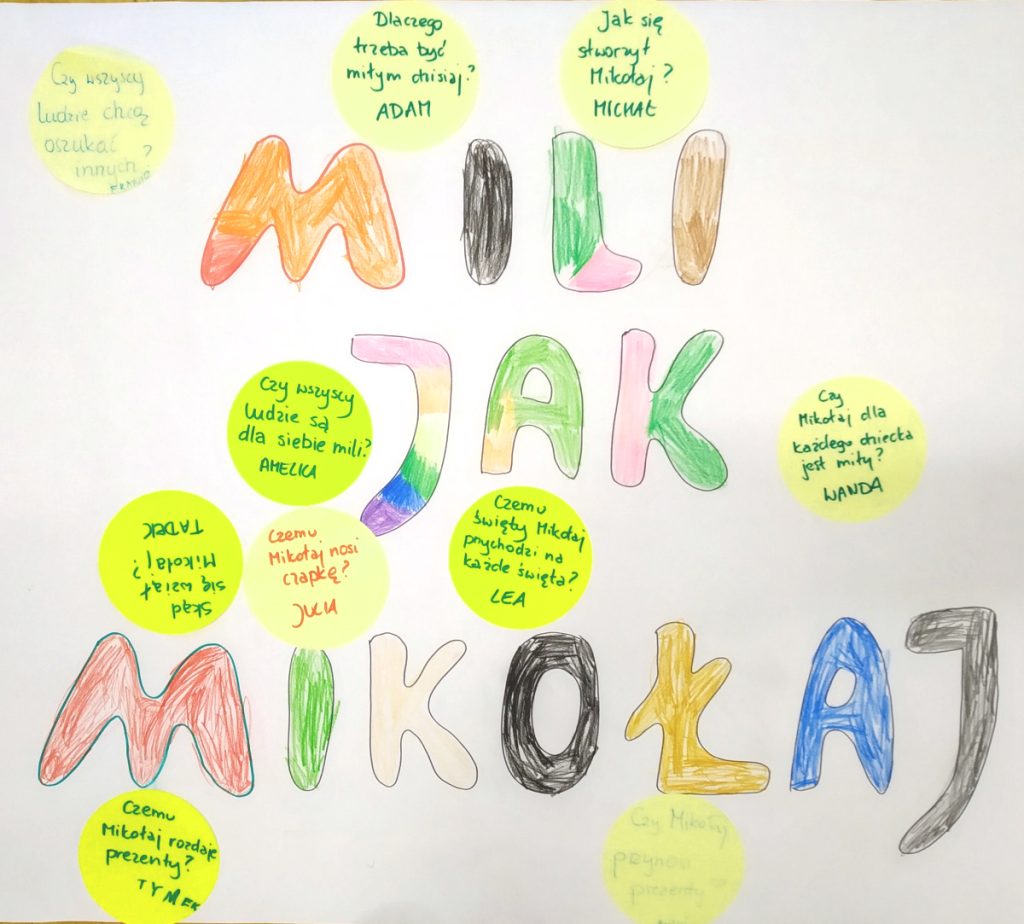 Czy wszyscy
ludzie chcą
oszukać
innych?
FRANIO
Dlaczego
trzeba być
miłym dzisiaj?
ADAM
Jak się
stworzył
Mikołaj?
MICHAŁ
MILI
JAK
Czy wszyscy
ludzie są
dla siebie mili?
AMELKA
Czy
Mikołaj dla
każdego dziecka
jest miły?
WANDA
Skąd
się wziął
Mikołaj?
TADEK
Czemu
Mikołaj nosi
czapkę?
JULIA
Czemu
święty Mikołaj
przychodzi na
każde święta?
LEA
MIKOŁAJ
Czemu
Mikołaj rozdaje
prezenty?
TYMEK
Czy Mikołaj
przynosi
prezenty?